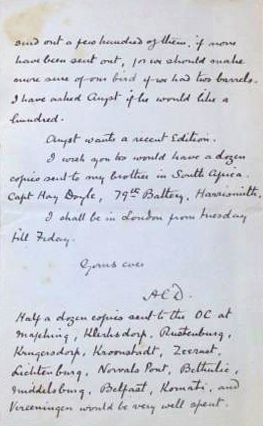 send out a few hundred of them, if none
have been sent out, for we should make
more sure of our bird if we had two barrels.
I have asked Angst if he would like a
hundred.
Angst wants a recent Edition.
I wish you wd would have a dozen
copies sent to my brother in South Africa.
Capt Hay Doyle, 79th Battery, Harrismith.
I shall be in London from Tuesday
till Friday.
Yours ever
ACD.
Half a dozen copies sent to the OC at
Mafeking, Klerksdorp, Rustenburg,
Krugersdorp, Kroonstadt, Zeerust,
Lichtenburg, Norvals Pont, Bethulie,
Middelsburg, Belfast, Komati, and
Vereeningen would be very well spent.